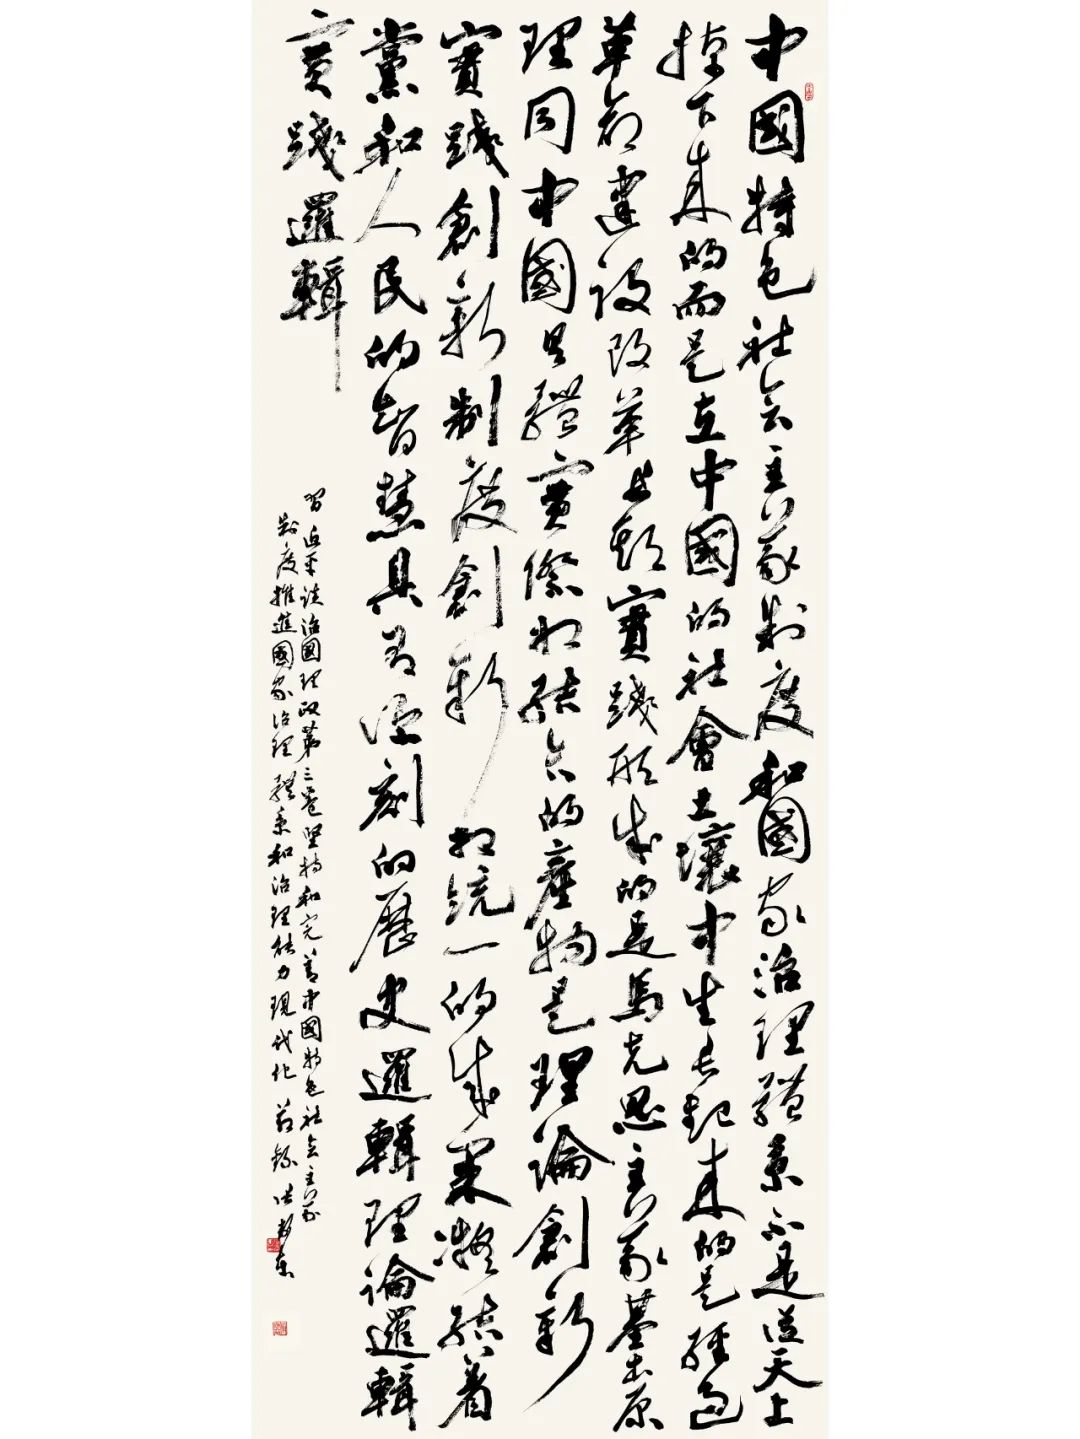 中國特色社会主義制度和國家治理體系不是從天上
掉下来的而是在中國的社會土壤中生长起来的是經過
革命建設改革长期實踐形成的是馬克思主義基本原
理同中國具體實際相結合的產物是理論創新
實踐創新制度創新相統一的成果凝結着
黨和人民的智慧具有深刻的歷史邏輯理論邏輯
實踐邏輯
習近平談治國理政第三卷堅持和完善中國特色社会主義
制度推進國家治理體系和治理能力現代化